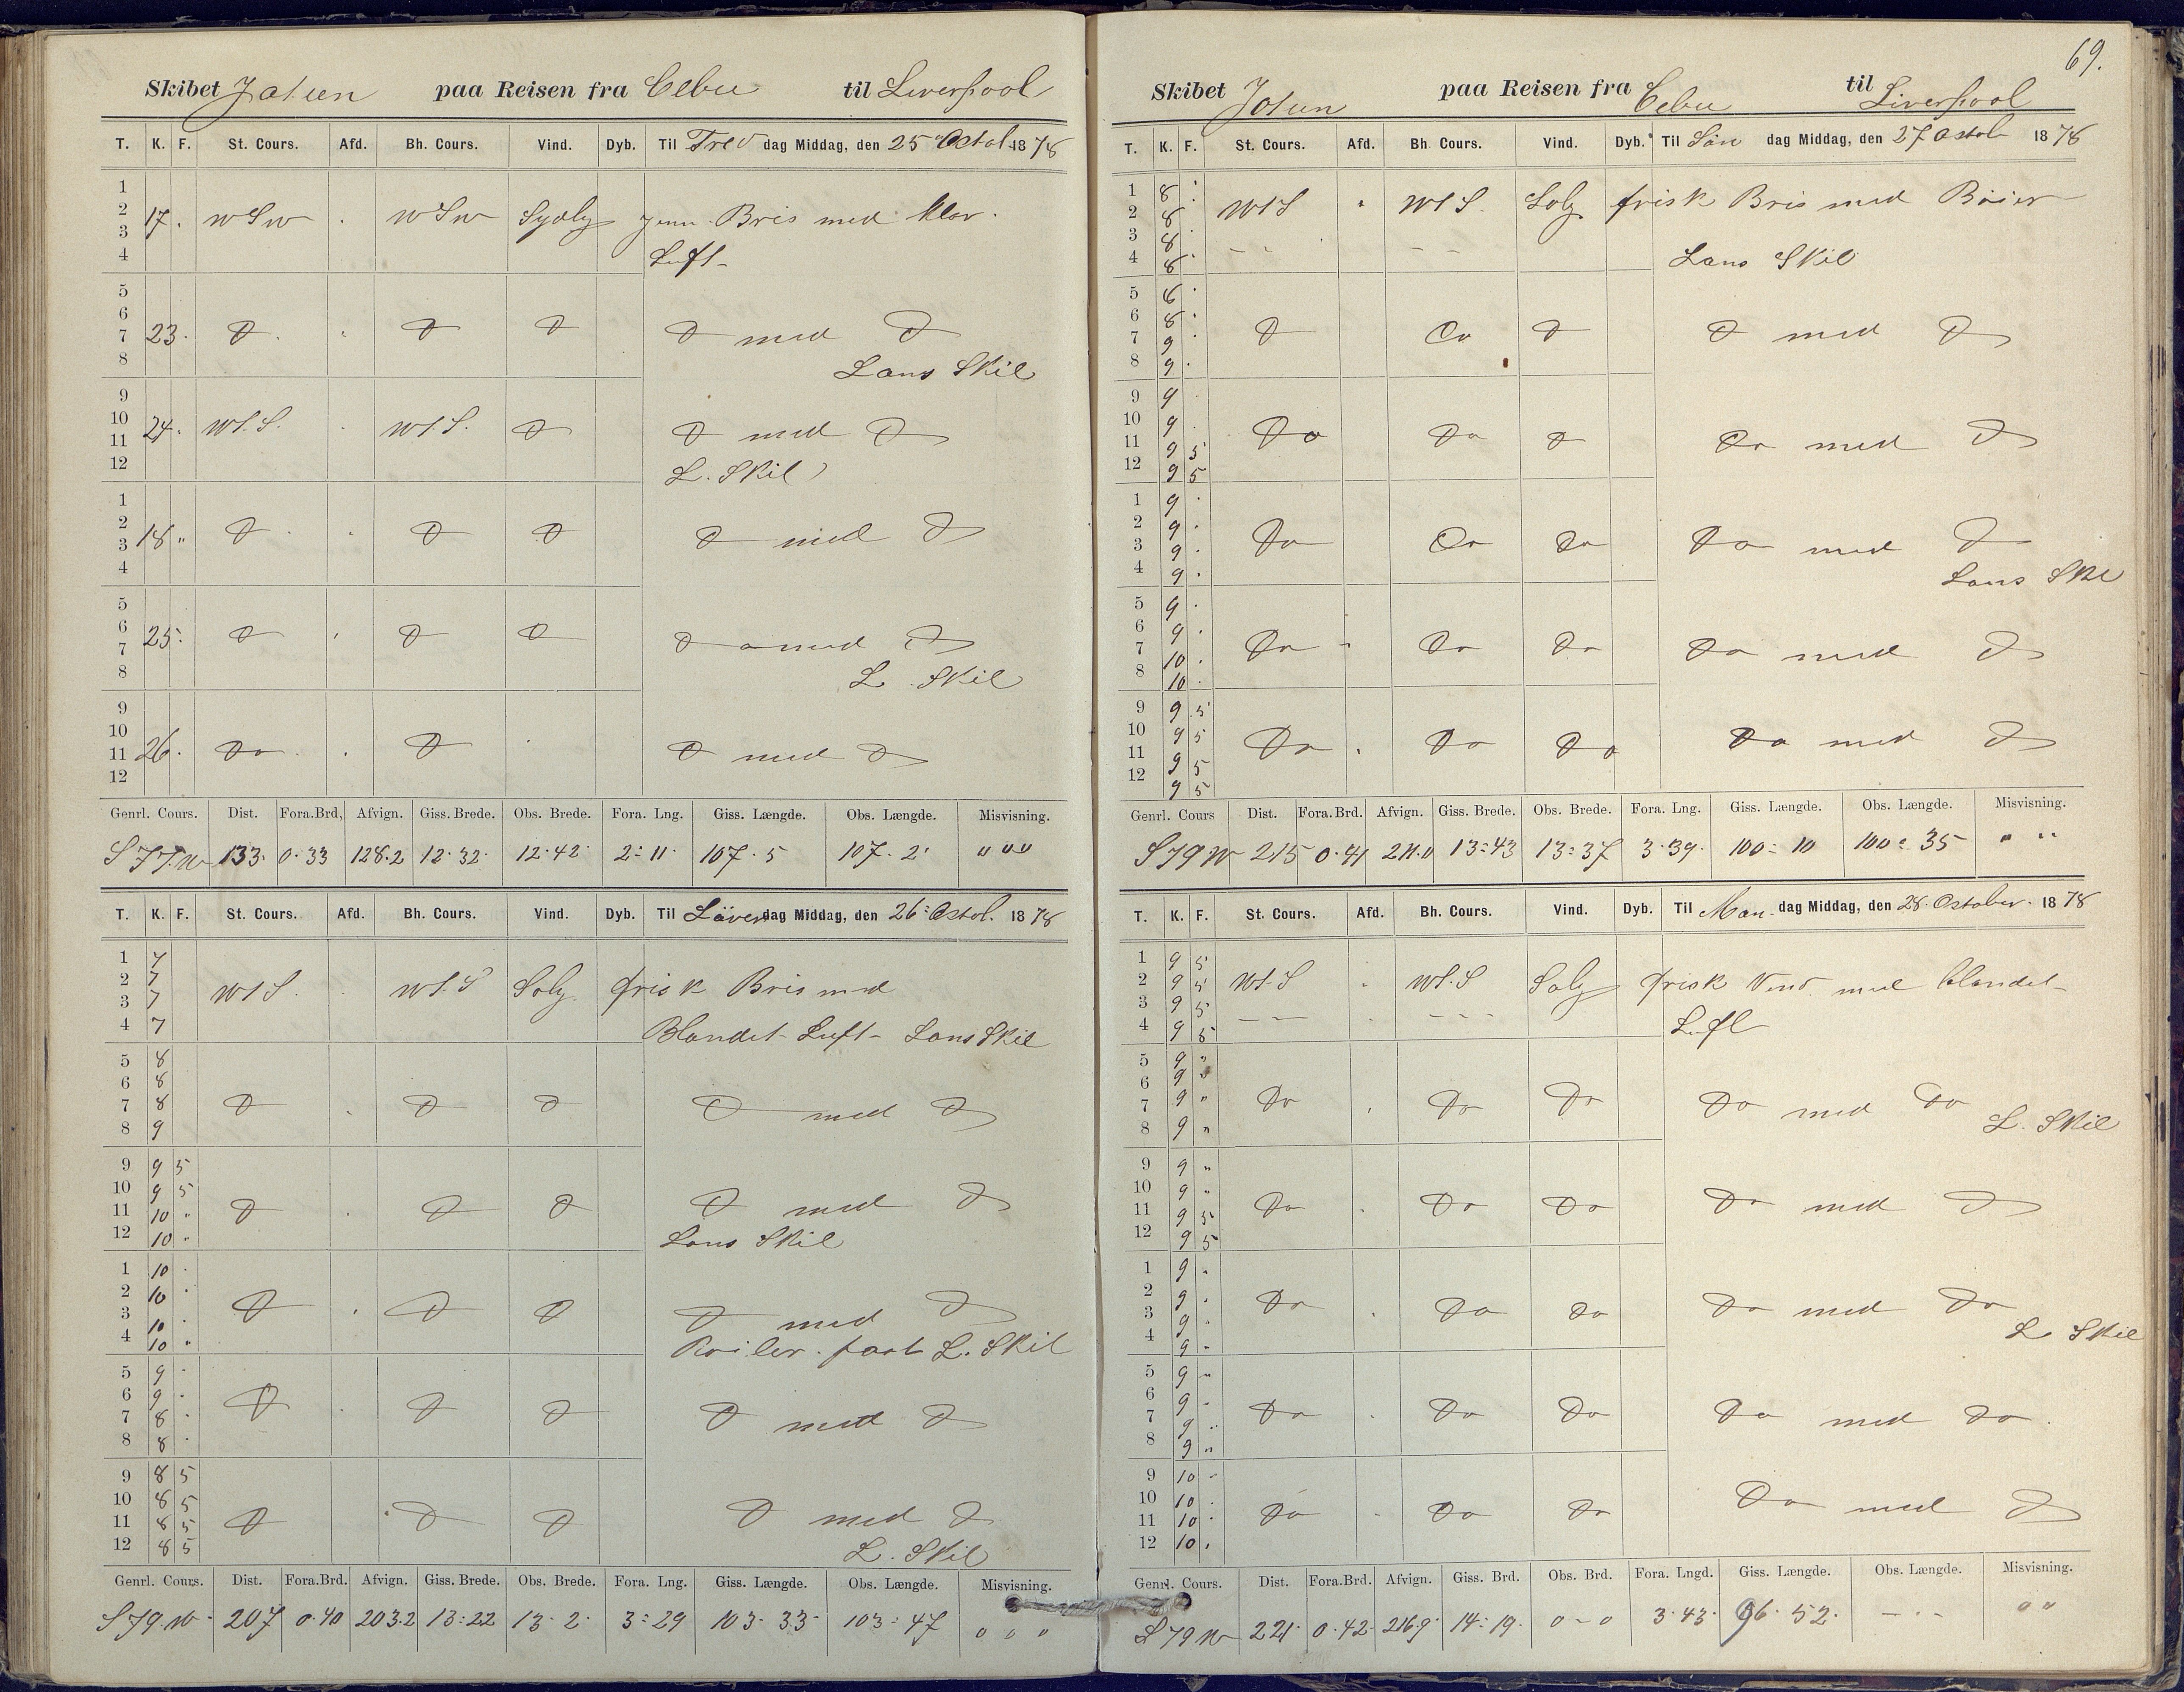 Skibet Jotun paa Reisen fra Cebu til Liverpool
T. K. F. St. Cours. Afd. Bh. Cours. Vind. Dyb. Til Fredag Middag, den 25 Octob. 1878
1
2 17. WSW . WSW Sydlig Jevn Bris med klar
3
4 Luft
5
6
7 23. D . D D D med D
8 Lans Skil
9
10 24. WtS. . WtS. D D med D
11
12 L. Skil
1
2
3 18 " D . D D D med D
4
5
6 25. D . D D Do med D
7
8 L. Skil
9
10
11 26. Do . D . D med D
12
Genrl. Cours. Dist. Fora.Brd, Afvign. Giss. Brede. Obs. Brede. Fora. Lng. Giss. Længde. Obs. Længde. Misvisning.
S 77 W 133. 0.33 128.2 12.32 12.42 2=11. 107.5 107.2 " " "
T. K. F. St. Cours. Afd. Bh. Cours. Vind. Dyb. Til Löverdag Middag, den 26 Octob. 1878
1 7
2 7 WtS. . WtS Soly frisk Bris med
3 7
4 7 Blandet Luft Lans Skil
5 8
6 8
7 8 D . D D D med D
8 9
9 9 5
10 9 5
11 10 " D . D D D med D
12 10 " Lans Skil
1 10 .
2 10 .
3 10 . D . D D D med D
4 10 " L. Skil
5 9 .
6 9 .
7 8 . D . D D D med D
8 8 .
9 8 5
10 8 5
11 8 5 D . D D D med D
12 8 5 L. Skil
Genrl. Cours. Dist. Fora.Brd. Afvign. Giss. Brede. Obs. Brede. Fora. Lng. Giss. Længde. Obs. Længde. Misvisning.
S 79 W 207 0.40 203.2 13=22 13.2 3=29 103.33 103=47 " " "
69.
Skibet Jotun paa Reisen fra Cebu til Liverpool
T. K. F. St. Cours. Afd. Bh. Cours. Vind. Dyb. Til Søndag Middag, den 27 Octob 1878
1 8 .
2 8 . WtS " WtS. Soly. frisk Bris med Böier
3 8 .
4 8 . Lans Skil
5 8 .
6 8 .
7 9 . D Do D D med D
8 9 .
9 9 .
10 9 .
11 9 5 Do Do D Do med D
12 9 5
1 9 .
2 9 .
3 9 . Do Do Do Do med D
4 9 . Lans Skl
5 9 .
6 9 .
7 10 . Do - Do Do Do med D
8 10 .
9 9 5
10 9 5
11 9 5 Do . Do Do Do med D
12 9 5
Genrl. Cours Dist. Fora.Brd. Afvign. Giss. Brede. Obs. Brede. Fora. Lng. Giss. Længde. Obs. Længde. Misvisning.
S 79 W 215 0.41 211.0 13=43 13=37 3.39. 100=10 100=35 " "
T. K. F. St. Cours. Afd. Bh. Cours. Vind. Dyb. Til Mandag Middag, den 28. October. 1878
1 9 5
2 9 5 WtS . WtS Soly frisk Vind med blandet
3 9 5
4 9 5 Luft
5 9 "
6 9 "
7 9 " Do . Do Do Do med Do
8 9 " L. Skil
9 9 "
10 9 "
11 9 5 Do . Do Do Do med D
12 9 5
1 9 "
2 9 .
3 9 . Do . Do Do Do med Do
4 9 " L Skil
5 9 "
6 9 .
7 9 " Do . Do Do Do med Do.
8 9 "
9 10 .
10 10 .
11 10 . Do . Do Do Do med D
12 10 .
Genrl. Cours. Dist. Fora.Brd. Afvign. Giss. Brd. Obs. Brd. Fora. Lngd. Giss. Længde. Obs. Længde. Misvisning.
S 79 W 221. 0.42. 216.9 14=19. 0-0 3.43. 96.52. - - - " "